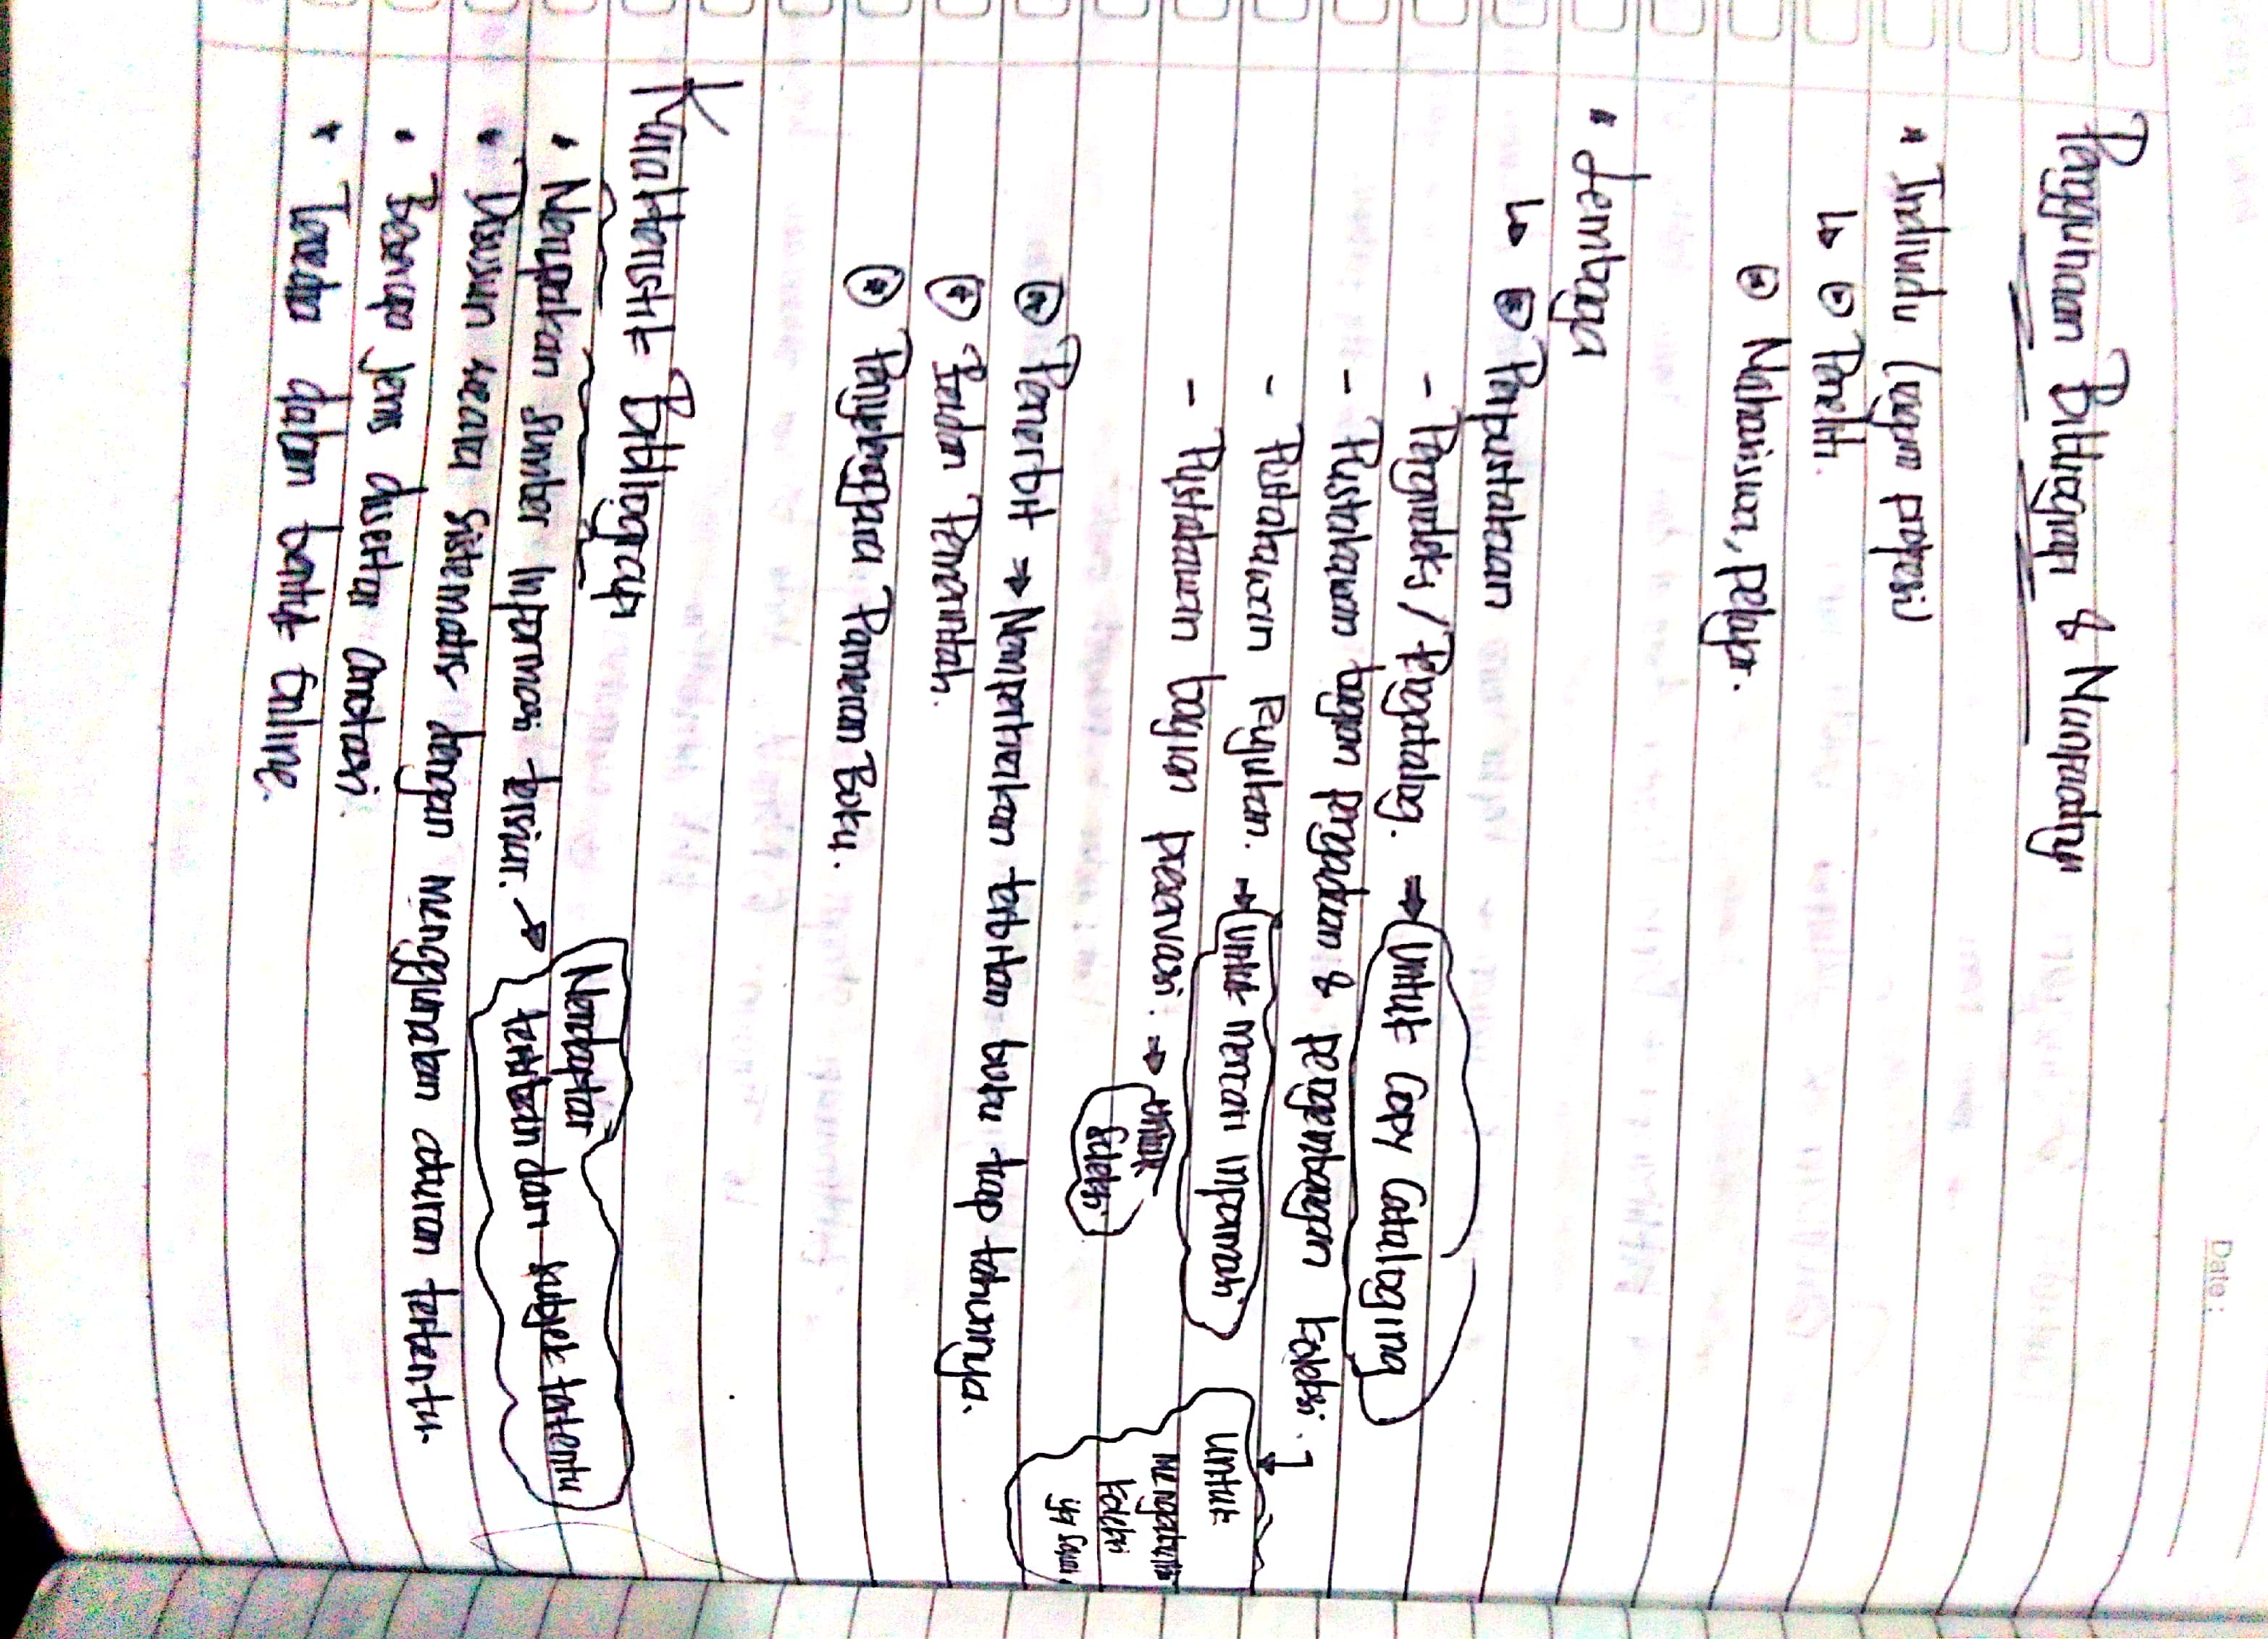 Date:
Penggunaan Bibliografi & Nuupnadiy"
Individu (ragam profesi)
↳ Peneliti.
Mahasiswa, pelajar.
Lembaga
↳ Perpustakaan
- Pengindeks / Pengatalog. ⇒ Untuk Copy Cataloging
- Pustakawan bagian pengadaan & pengembangan koleksi.
Untuk mengetahui koleksi yg
- Pustakawan Rujukan. → Untuk mencari informasi
- Pustakawan bagian preservasi. ⇒ Untuk seleksi
Penerbit ⇒ Memperkirakan terbitan buku tiap tahunnya.
Badan Pemerintah.
Penyelenggara Pameran Buku.
Karakteristik Bibliografi
• Merupakan sumber informasi tersier. → Mendaftar terbitan dari subjek tertentu
• Disusun secara sistematis dengan menggunakan aturan tertentu.
• Beberapa jenis disertai anotasi.
• Tersedia dalam bentuk online.